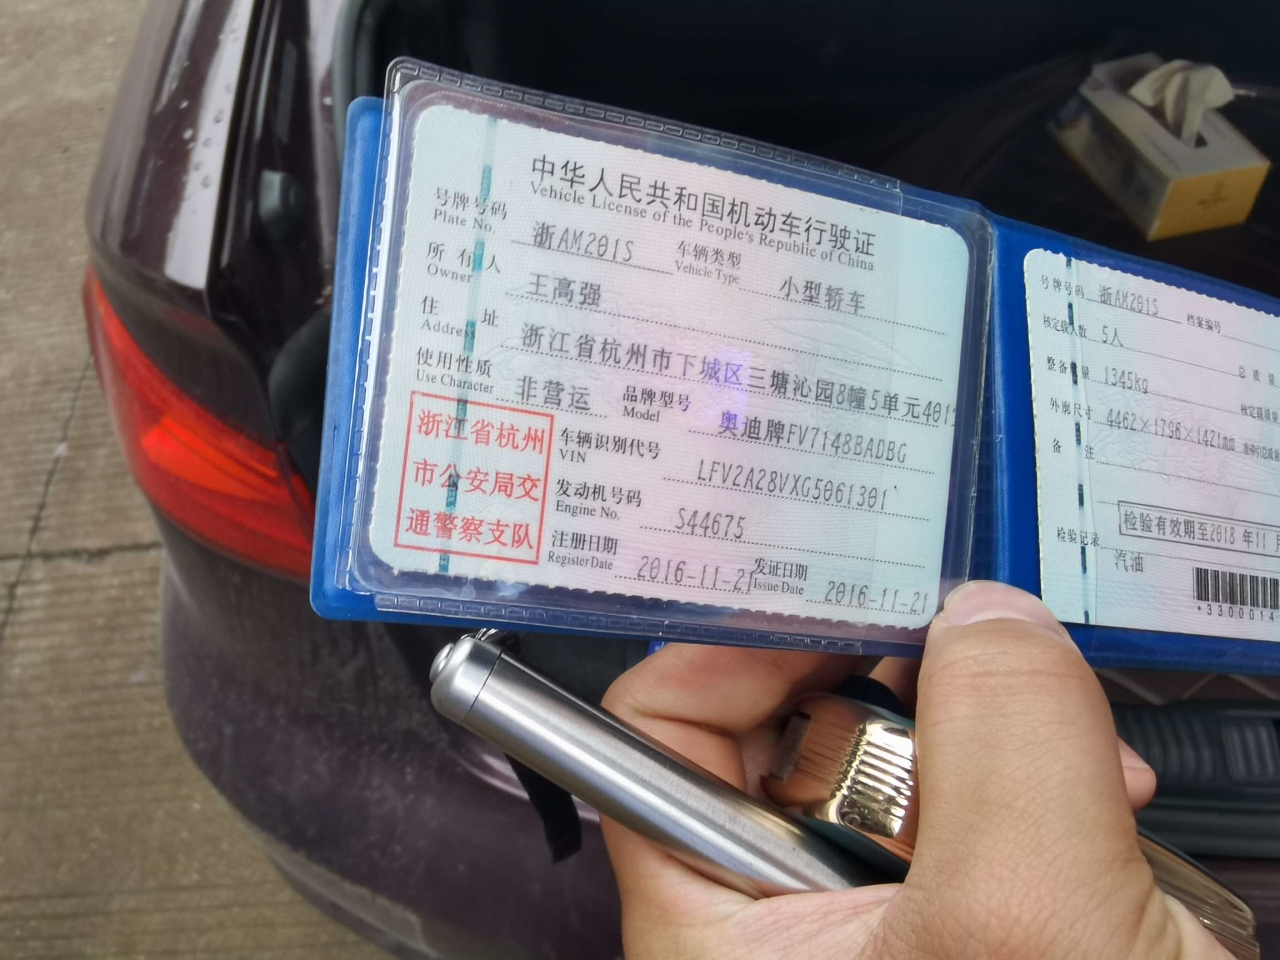 中华人民共和国机动车行驶证
Vehicle License of the People's Republic of China
号牌号码 浙AM201S 车辆类型 小型轿车
Plate No. Vehicle Type
所有人 王高强
Owner
住址 浙江省杭州市下城区三塘沁园8幢5单元401
Address
使用性质 非营运 品牌型号 奥迪牌FV7148BADBG
Use Character Model
浙江省杭州
市公安局交
通警察支队
车辆识别代号 LFV2A28VXG5061301
VIN
发动机号码 S44675
Engine No.
注册日期 2016-11-21 发证日期 2016-11-21
Register Date Issue Date
号牌号码 浙AM201S 档案编号
核定载人数 5人 总质量
整备质量 1345kg 核定载质量
外廓尺寸 4462×1796×1421mm 准牵引总质量
备注
检验有效期至2018年11月
检验记录
汽油
*3300014